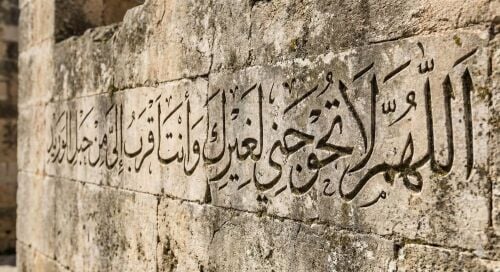 اللَّهُمَّ لَا تحوجَني لغيركَ وَأنتَ اقربُ إليَّ من حبل الوريد